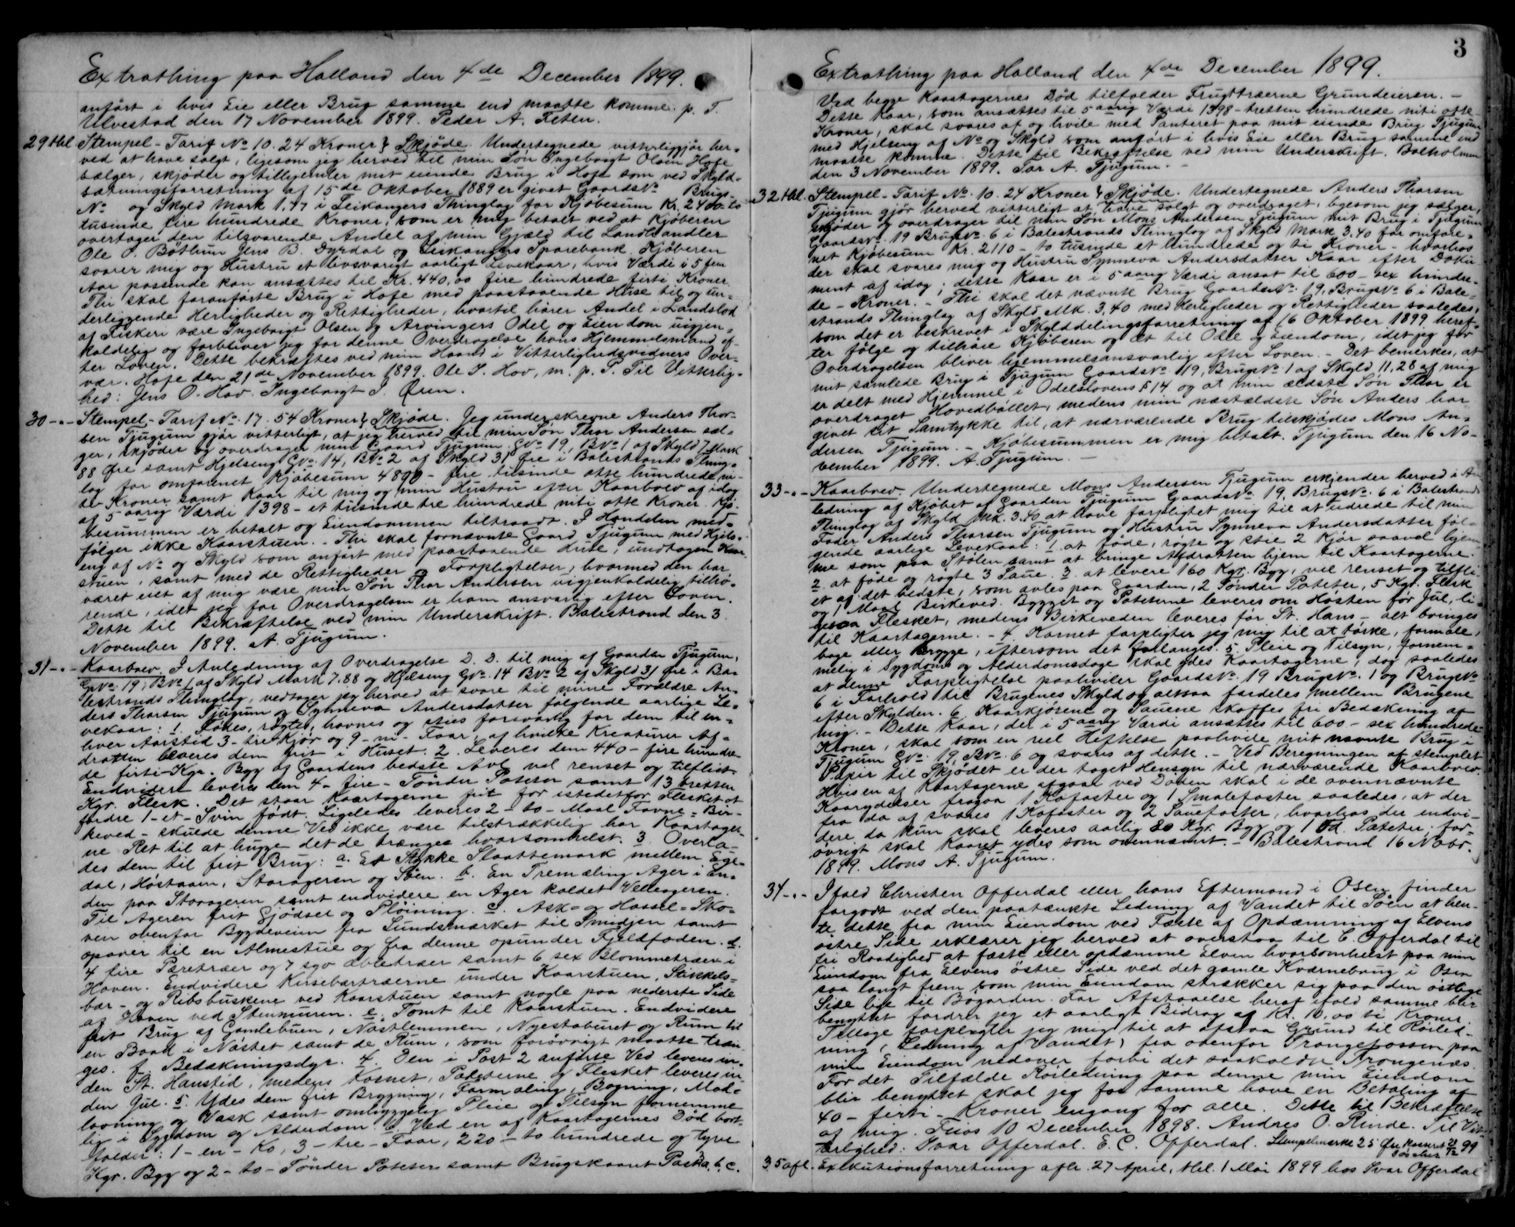 Extrathing paa Holland den 4de December 1899.
anført i hvis Eie eller Brug samme end maatte komme. p. T.
Ulvestad den 17 November 1899. Peder A. Feten.
29 thl Stempel-Tarif No 10. 24 Kroner } Skjøde. Undertegnede vitterliggjør her-
ved at have solgt, ligesom jeg herved til min Søn Ingebrigt Olsen Hofe
sælger, skjøder og tilhjemler mit eiende Brug i Hofe som ved Skyld-
sætningsforretning af 15de Oktober 1889 er givet Gaards No Brugs-
No og Skyld Mark 1.47 i Leikangers Thinglag for Kjøbesum Kr. 2400 to
tusinde fire hundrede Kroner, som er mig betalt ved at Kjøberen
overtager den tilsvarende Andel af min Gjæld til Landhandler
Ole O. Bøthun, Jens B. Fyrdal og Leikangers Sparebank. Kjøberen
svarer mig og Hustru et livsvarigt aarligt Livekaar, hvis Værdi i 5 fem
Aar passende kan ansættes til Kr. 440,00 fire hundrede firti Kroner.
Thi skal foranførte Brug i Hofe med paastaaende Huse til og un-
derliggende Herligheder og Rettigheder, hvortil hører Andel i Landslod
af Fiskeri være Ingebrigt Olsen og Arvingers Odel og Eiendom uigjen-
kaldelig og forbliver jeg for denne Overdragelse hans Hjemmelsmand ef-
ter Loven. Dette bekræftes ved min Haand i Vitterlighedsvidners Over-
vær. Hofe den 21de November 1899. Ole I. Hov, m. p. P. Til Vitterlig-
hed: Jens O. Hov. Ingebrigt J. Øren.
30 -"- Stempel-Tarif No 17. 54 Kroner } Skjøde. Jeg underskrevne Anders Thor-
sen Tjugum gjør vitterligt, at jeg herved til min Søn Thor Andersen sæl-
ger, skjøder og overdrager min Gaard Tjugum, GNo 19, BNo 1 af Skyld 7 Mark
88 Øre samt Hjelseng GNo 14, BNo 2 af Skyld 31 Øre i Balestrands Thing-
lag for omforenet Kjøbesum 4890 - fire tusinde otte hundrede ni-
ti Kroner samt Kaar til mig og min Hustru efter Kaarbrev af idag
af 5 aarig Værdi 1398 - et tusinde tre hundrede niti otte Kroner. Kjø-
besummen er betalt og Eiendommen tiltraadt. I Handelen med-
følger ikke Kaarstuen. - Thi skal fornævnte Gaard Tjugum med Hjels-
eng af No og Skyld som anført med paastaaende Huse, undtagen Kaar-
stuen, samt med de Rettigheder og Forpligtelser, hvormed den har
været eiet af mig være min Søn Thor Andersen uigjenkaldelig tilhø-
rende, idet jeg for Overdragelsen er ham ansvarlig efter Loven.
Dette til Bekræftelse ved min Underskrift. Balestrand den 3
November 1899. A. Tjugum.
31 -"- Kaarbrev. I Anledning af Overdragelse D. D. til mig af Gaarden Tjugum,
GNo 19, BNo 1 af Skyld Mark 7.88 og Hjelseng GNo. 14 BNo 2 af Skyld 31 Øre i Ba-
lestrands Thinglag, vedtager jeg herved at svare til mine Forældre An-
ders Thorsen Tjugum og Synneva Andersdatter følgende aarlige Le-
vekaar: 1. Fødes, røgtes, havnes og sties forsvarlig for dem til en-
hver Aarstid 3 - tre Kjør og 9 - ni - Faar, af hvilke Kreaturer Af-
drotten leveres dem frit i Huset. 2. Leveres dem 440 - fire hundre
de firti - Kgr. Byg af Gaardens bedste Avl vel renset og tilflidt.
Endvidere leveres dem 4 - fire - Tønder Poteter samt 13 tretten
Kgr. Flesk. Det staar Kaartagerne frit for istedetfor Flesket at
fordre 1 - et - Svin født. Ligeledes leveres 2 - to - Maal Favne - Bir-
keved - skulde denne Ved ikke være tilstrækkelig har Kaartager-
ne Ret til at hugge det de trænges hvorsomhelst. 3. Overla-
des dem til frit Brug: a. Et Stykke Slaattemark mellem Ege-
dal, Hørtaaen, Storageren og Søen. b. En Tremæling Ager i En-
den paa Storageren samt endvidere en Ager kaldet Velleageren.
Til Ageren frit Gjødsel og Pløining. c. Ask- og Hassel-Sko-
ven ovenfor Bygdeveien fra Sundsmarket til Smidjen samt
opover til en Almestue og fra denne opunder Fjeldfoden. d.
4 fire Pæretræer og 7 syv Æbletræer samt 6 sex Blommetræer i
Haven. Endvidere Kirsebærtræerne under Kaarstuen, Stikkels-
bær- og Ribs buskene ved Kaarstuen samt nogle paa nederste Side
af Haven ved Stenmuren. e. Tomt til Kaarstuen. Endvidere
frit Brug af Gamlebuen, Nastlemmen, Nyestaburet og Rum til
en Baad i Nøstet samt de Rum, som forøvrigt maatte træn-
ges. f. Bedækningsdyr. 4. Den i Post 2 anførte Ved leveres in-
den St. Hanstid, medens Kornet, Poteterne og Flesket leveres in-
den Jul. 5. Ydes dem frit Brygning, Formaling, Bagning, Mad-
lavning og Vask samt omhyggelig Pleie og Tilsyn fornemme-
lig i Sygdom og Alderdom. 6. Ved en af Kaartagernes Død bort-
falder: 1 - en - Ko, 3 - tre - Faar, 220 - to hundrede og tyve
Kgr. Byg og 2 - to - Tønder Poteter samt Brugskaaret Post 3. b. c.
3
Extrathing paa Holland den 4de December 1899.
Ved begge Kaartagernes Død tilfalder Frugttræerne Grundeieren. -
Dette Kaar, som ansættes til 5 aarig Værdi 1398 - tretten hundrede niti otte
Kroner, skal svares af og hvile med Panteret paa mit eiende Brug Tjugum
med Hjelseng af No og Skyld som anført i hvis Eie eller Brug samme end
maatte komme. Dette til Bekræftelse ved min Underskrift. Balholmen
den 3 November 1899. Tor A. Tjugum. -
32 thl. Stempel-Tarif No. 10. 24 Kroner } Skjøde. Undertegnede Anders Thorsen
Tjugum gjør herved vitterligt at have solgt og overdraget, ligesom jeg sælger,
skjøder og overdrager til min Søn Mons Andersen Tjugum mit Brug i Tjugum
GaardsNo. 19 BrugsNo. 6 i Balestrands Thinglag af Skyld Mark 3.40 for omfore-
net Kjøbesum Kr. 2110 - to tusinde et hundrede og ti Kroner - hvorhos
der skal svares mig og Hustru Synneva Andersdatter Kaar efter Doku-
ment af idag; dette Kaar er i 5 aarig Værdi ansat til 600 - sex hundre-
de - Kroner. - Thi skal det nævnte Brug GaardsNo. 19, BrugsNo. 6 i Bale-
strands Thinglag af Skyld Mk. 3,40 med Herligheder og Rettigheder saaledes,
som det er beskrevet i Skylddelingsforretning af 16 Oktober 1899 heref-
ter følge og tilhøre Kjøberen og Æt til Odle og Eiendom, idet jeg for
Overdragelsen bliver hjemmelsansvarlig efter Loven. - Det bemerkes, at
mit samlede Brug i Tjugum GaardsNo 19, BrugsNo. 1 af Skyld 11,28 af mig
er delt med Hjemmel i Odelslovens § 14 og at min ældste Søn Thor er
overdraget Hovedbøllet, medens min næstældste Søn Anders har
givet sit Samtykke til, at nærværende Brug tilskjødes Mons An-
dersen Tjugum. - Kjøbesummen er mig betalt. Tjugum den 16 No-
vember 1899. A. Tjugum. -
33 -"- Kaarbrev. Undertegnede Mons Andersen Tjugum erkjender herved i An-
ledning af Kjøbet af Gaarden Tjugum GaardsNo. 19, BrugsNo. 6 i Balestrands
Thinglag af Skyld Mk. 3.40 at have forpligtet mig til at udrede til min
Fader Anders Thorsen Tjugum og Hustru Synneva Andersdatter føl-
gende aarlige Levekaar: 1. at føde, røgte og stie 2 Kjør saavel hjem-
me som paa Stølen samt at bringe Afdrotten hjem til Kaartagerne.
2. at føde og røgte 3 Sauer. 3. at levere 160 Kgr. Byg, vel renset og tilfli-
et af det bedste, som avles paa Gaarden, 2 Tønder Poteter, 5 Kgr. Flesk
og 1 Maal Birkeved. Bygget og Poteterne leveres om Høsten før Jul, li-
gesaa Flesket, medens Birkeveden leveres før St. Hans - alt bringes
til Kaartagerne. - 4. Kornet forpligter jeg mig til at tørke, formale,
bage eller brygge, eftersom det forlanges. 5. Pleie og Tilsyn, fornem-
melig i Sygdoms og Alderdomsdage skal ydes Kaartagerne, dog saaledes
at denne Forpligtelse paahviler GaardsNo. 19 BrugsNo. 1 og BrugsNo
6 i Forhold til Brugenes Skyld og altsaa fordeles mellem Brugene
efter Skylden. 6. Kaarkjørene og Sauene skaffes fri Bedækning af
mig. - Dette Kaar, der i 5 aarig Værdi ansættes til 600 - sex hundrede
Kroner, skal som en reel Heftelse paahvile mit nævnte Brug i
Tjugum GNo. 19, BNo. 6 og svares af dette. - Ved Beregningen af stemplet
Papir til Skjødet er der taget Hensyn til nærværende Kaarbrev.
Hvis en af Kaartagerne afgaar ved Døden skal i de ovennævnte
Kaarydelser fragaa 1 Kofoster og 1 Smalefoster saaledes, at der
fra da af svares 1 Kofoster og 2 Sauefoster, hvorhos der endvi-
dere da kun skal leveres aarlig 80 Kgr. Byg og 1 Td. Poteter; for-
øvrigt skal Kaaret ydes som ovennævnt. - Balestrand 16 Novbr.
1899. Mons A. Tjugum.
34 -"- Ifald Christen Offerdal eller hans Eftermand i Osen finder
forgodt ved den paatænkte Ledning af Vandet til Søen at hen-
te dette fra min Eiendom ved Fæste af Opdæmning af Elvens
østre Side erklærer jeg herved at overstaa til C. Offerdal til
fri Raadighed at fæste eller opdæmme Elven hvorsomhelst paa min
Eiendom fra Elvens østre Side ved det gamle Kværnebrug i Osen
saa langt frem som min Eiendom strækker sig paa den østlige
Side lige til Bøgarden. For Afstaaelse heraf ifald samme blir
benyttet fordrer jeg et aarligt Bidrag af Kr. 10,00 ti Kroner.
Tillige forpligter jeg mig til at afstaa Grund til Rørled-
ning, (Ledning af Vandet) fra ovenfor Trangefossen paa
min Eiendom nedover forbi det saakaldte Trongenes.
For det Tilfælde Rørledning paa denne min Eiendom
blir benyttet skal jeg for samme have en Betaling af
40 - firti - Kroner engang for alle. Dette til Bekræftelse
af mig. Feios 10 December 1898. Andres O. Rinde. Til Vit-
terlighed: Ivar Offerdal. E. C. Offerdal. Stempelmerke 25 Øre kasseret 99
35 afl. Exekutionsforretning afh. 27 April, thl. 1 Mai 1899 hos Ivar Offerdal